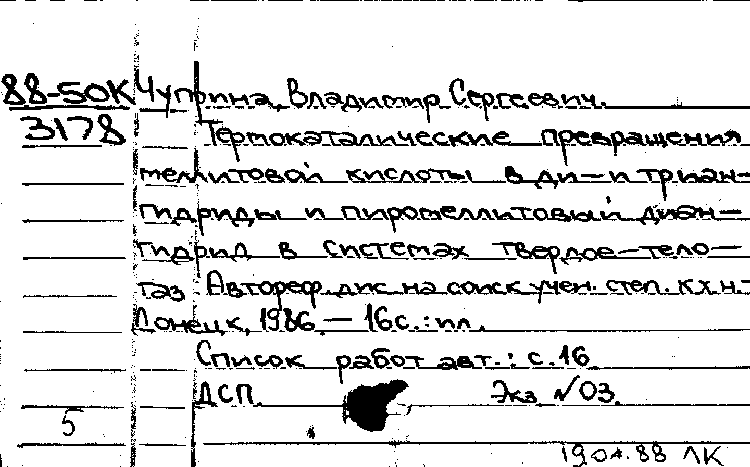 88-50К Чуприна, Владимир Сергеевич.
3178 Термокаталические превращения
меллитовой кислоты в ди-и триан-
гидриды и пиромеллитовый диан-
гидрид в системах твердое-тело-
газ: Автореф. дис. на соиск. учен. степ. к.х.н.-
Донецк, 1986.- 16с.: ил.
Список работ авт.: с.16.
ДСП. Экз. №03.
5
19.04.88 ЛК